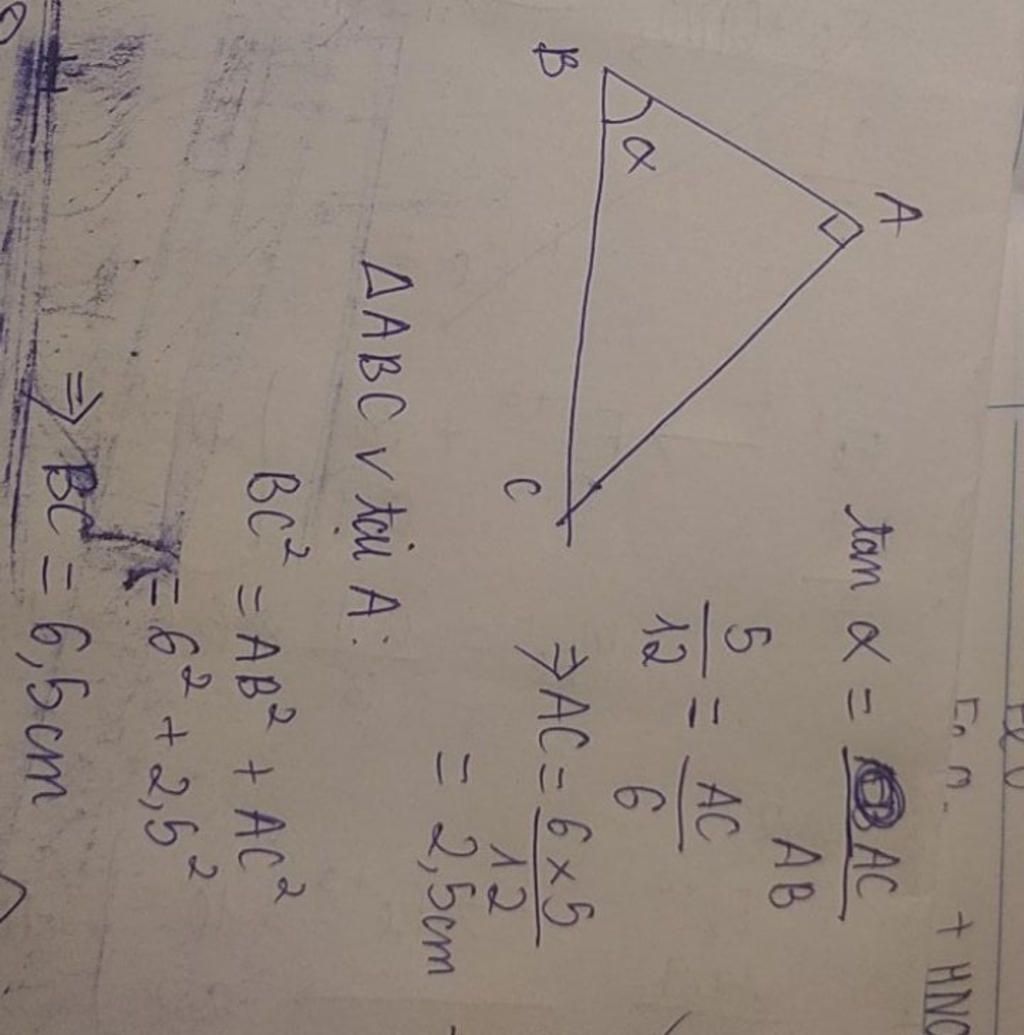 + HNO
A
B
α
C
tan α = AC / AB
5/12 = AC/6
⇒ AC = 6 × 5 / 12
= 2,5cm
Δ ABC v tại A:
BC² = AB² + AC²
= 6² + 2,5²
⇒ BC = 6,5cm